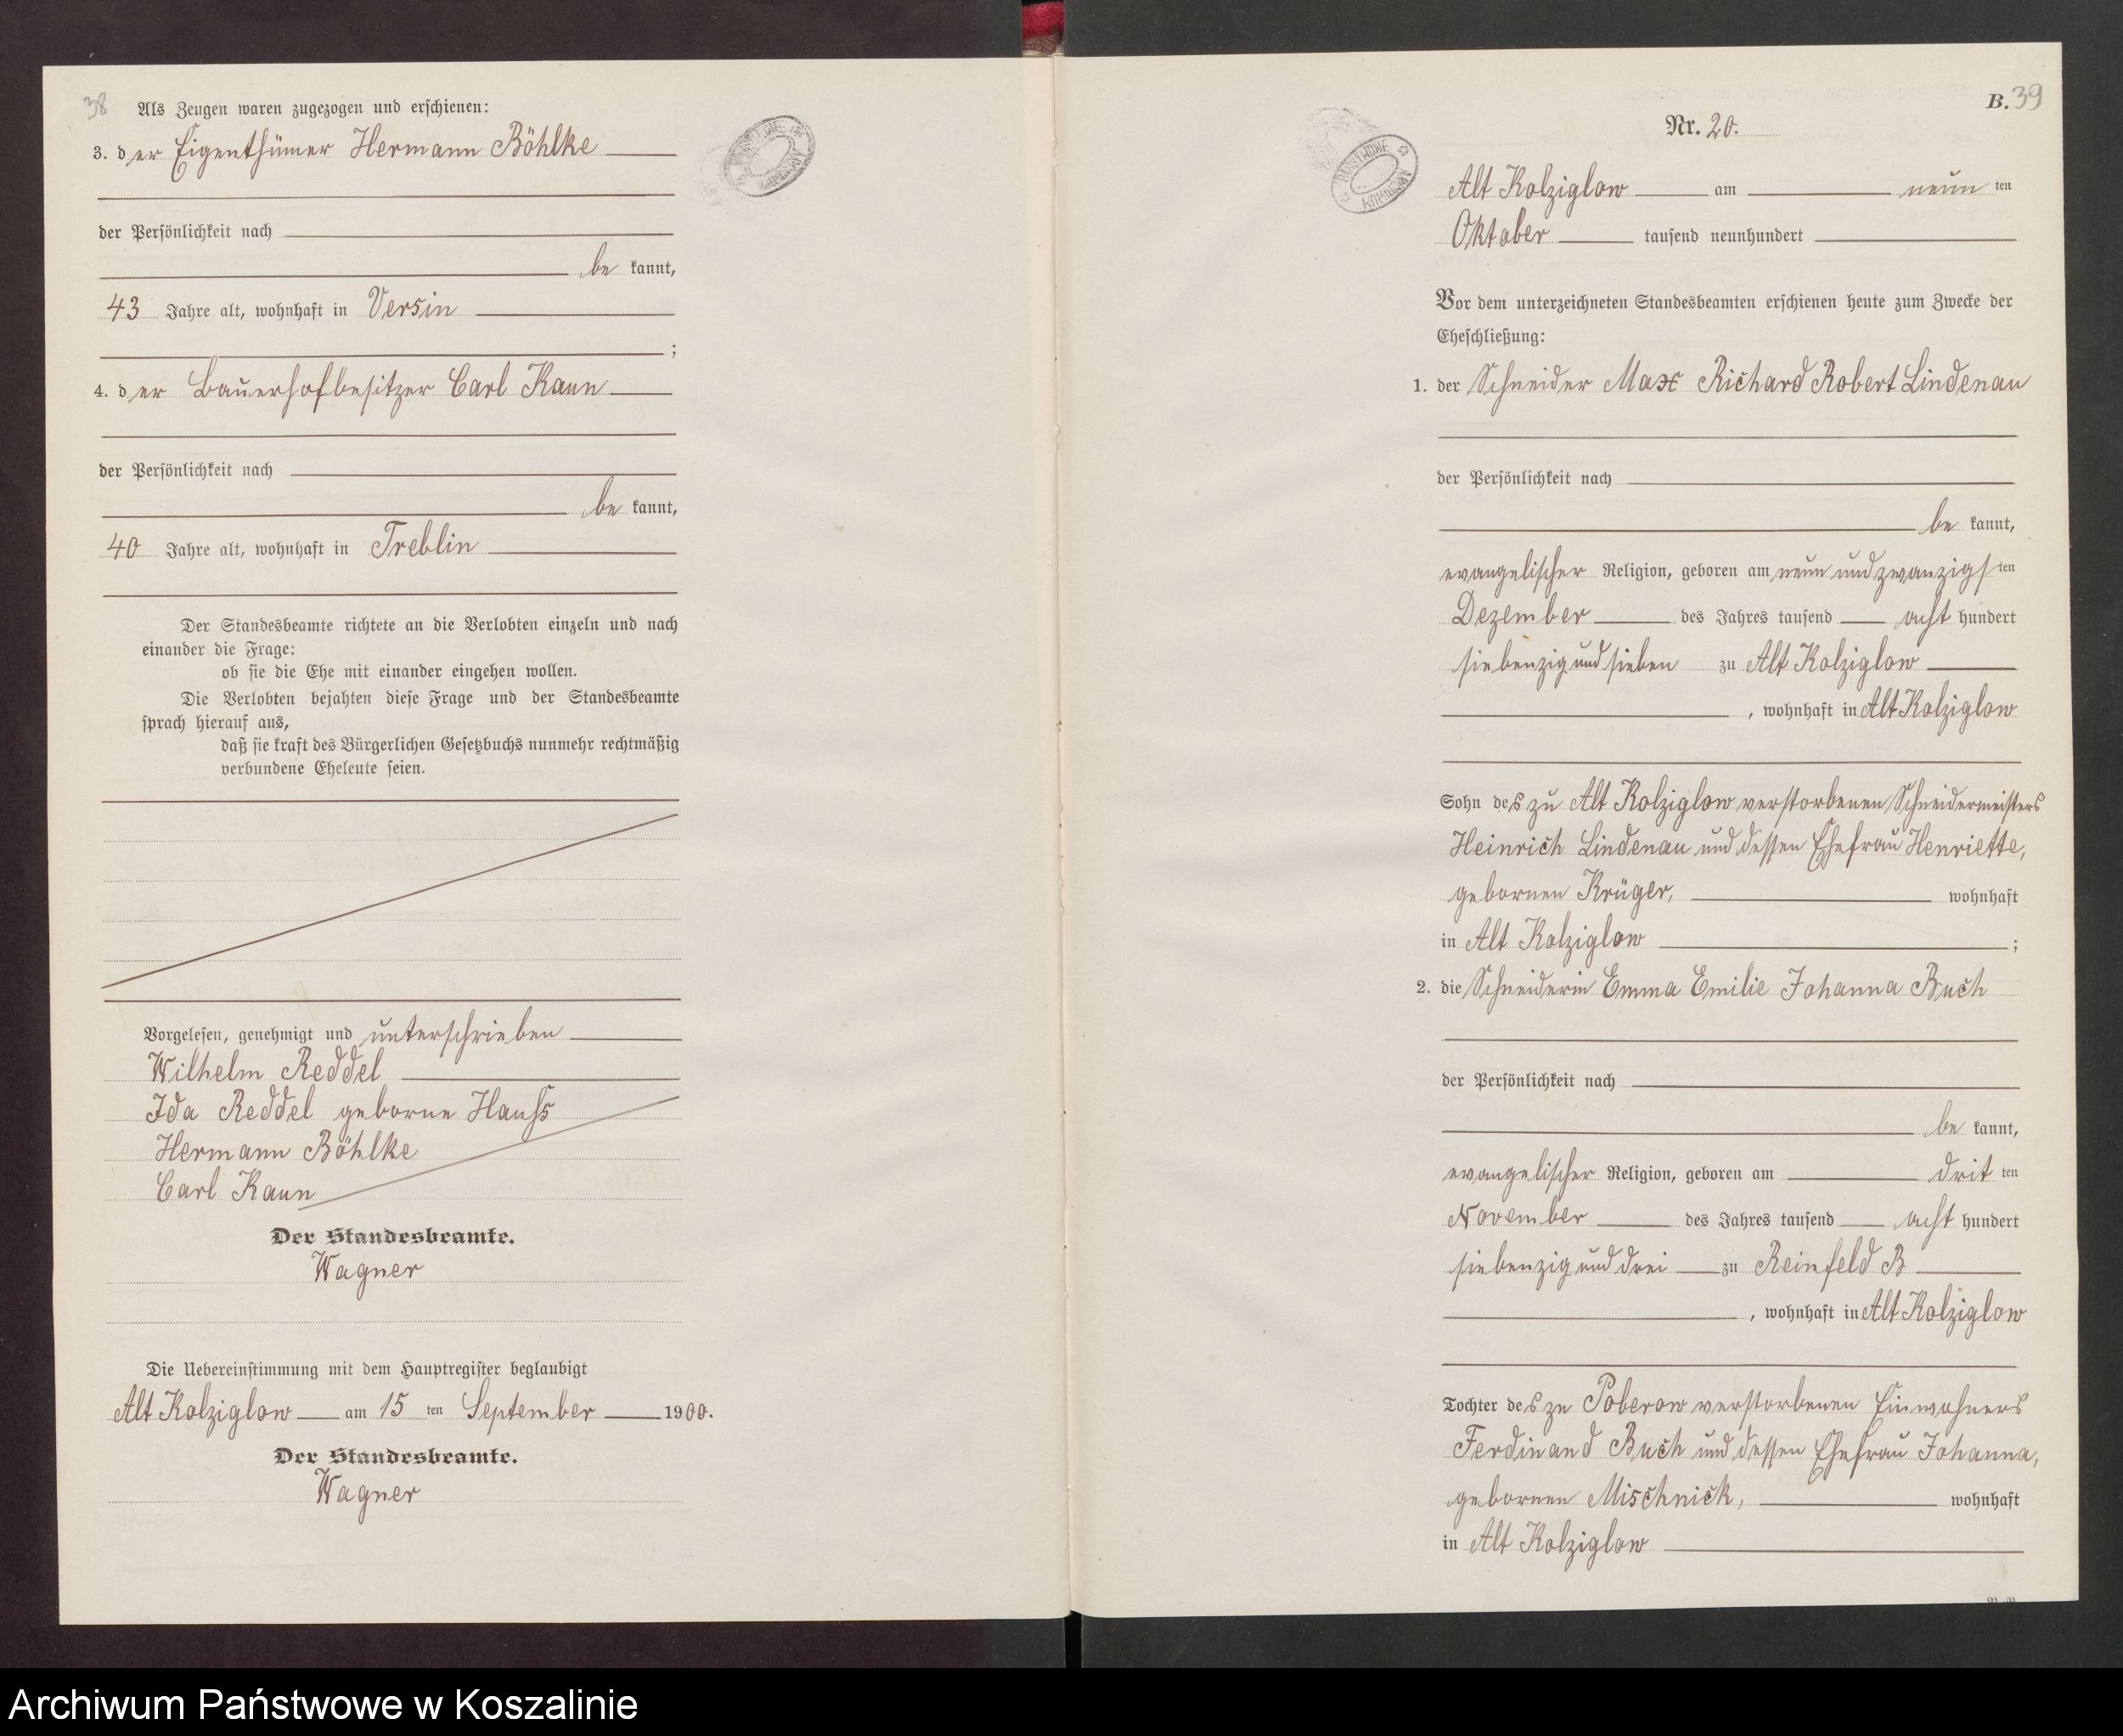 38
Als Zeugen waren zugezogen und erschienen:
3. der Eigenthümer Hermann Böhlke
der Persönlichkeit nach
be kannt,
43 Jahre alt, wohnhaft in Versin
;
4. der Bauerhofbesitzer Carl Kaun
der Persönlichkeit nach
be kannt,
40 Jahre alt, wohnhaft in Treblin
Der Standesbeamte richtete an die Verlobten einzeln und nach
einander die Frage:
ob sie die Ehe mit einander eingehen wollen.
Die Verlobten bejahten diese Frage und der Standesbeamte
sprach hierauf aus,
daß sie kraft des Bürgerlichen Gesetzbuchs nunmehr rechtmäßig
verbundene Eheleute seien.
Vorgelesen, genehmigt und unterschrieben
Wilhelm Reddel
Ida Reddel geborne Hauſs
Hermann Böhlke
Carl Kaun
Der Standesbeamte.
Wagner
Die Uebereinstimmung mit dem Hauptregister beglaubigt
Alt Kolziglow am 15 ten September 1900.
Der Standesbeamte.
Wagner
B. 39
Nr. 20.
Alt Kolziglow am neun ten
Oktober tausend neunhundert
Vor dem unterzeichneten Standesbeamten erschienen heute zum Zwecke der
Eheschließung:
1. der Schneider Max Richard Robert Lindenau
der Persönlichkeit nach
be kannt,
evangelischer Religion, geboren am neun und zwanzigs ten
Dezember des Jahres tausend acht hundert
siebenzig und sieben zu Alt Kolziglow
, wohnhaft in Alt Kolziglow
Sohn des zu Alt Kolziglow verstorbenen Schneidermeisters
Heinrich Lindenau und dessen Ehefrau Henriette,
gebornen Krüger, wohnhaft
in Alt Kolziglow ;
2. die Schneiderin Emma Emilie Johanna Buch
der Persönlichkeit nach
be kannt,
evangelischer Religion, geboren am drit ten
November des Jahres tausend acht hundert
siebenzig und drei zu Reinfeld B
, wohnhaft in Alt Kolziglow
Tochter des zu Poberow verstorbenen Einwohners
Ferdinand Buch und dessen Ehefrau Johanna,
gebornen Mischnick, wohnhaft
in Alt Kolziglow
Archiwum Państwowe w Koszalinie